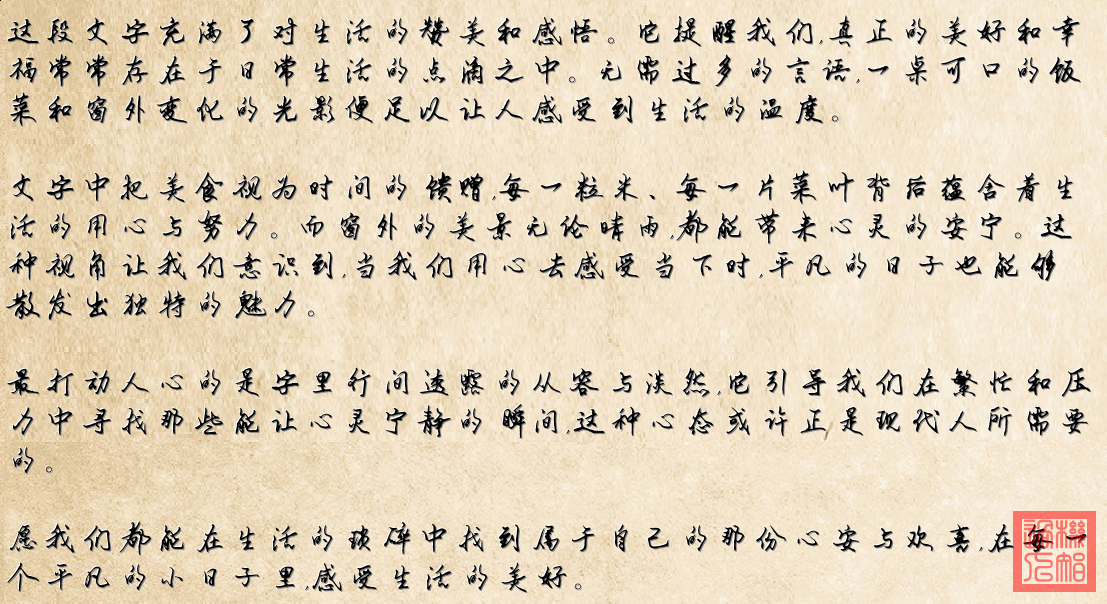 这段文字充满了对生活的赞美和感悟。它提醒我们,真正的美好和幸
福常常存在于日常生活的点滴之中。无需过多的言语,一桌可口的饭
菜和窗外变化的光影便足以让人感受到生活的温度。
文字中把美食视为时间的馈赠,每一粒米、每一片菜叶背后蕴含着生
活的用心与努力。而窗外的美景无论晴雨,都能带来心灵的安宁。这
种视角让我们意识到,当我们用心去感受当下时,平凡的日子也能够
散发出独特的魅力。
最打动人心的是字里行间透露的从容与淡然,它引导我们在繁忙和压
力中寻找那些能让心灵宁静的瞬间,这种心态或许正是现代人所需要
的。
愿我们都能在生活的琐碎中找到属于自己的那份心安与欢喜,在每一
个平凡的小日子里,感受生活的美好。